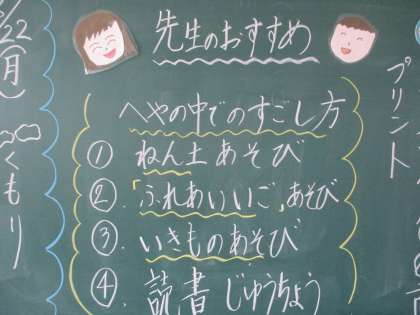 先生のおすすめ
へやの中でのすごし方
① ねん土あそび
②.「ふれあいいご」あそび
③. いきものあそび
④. 読書 じゆうちょう
プリント
22(月)
くもり